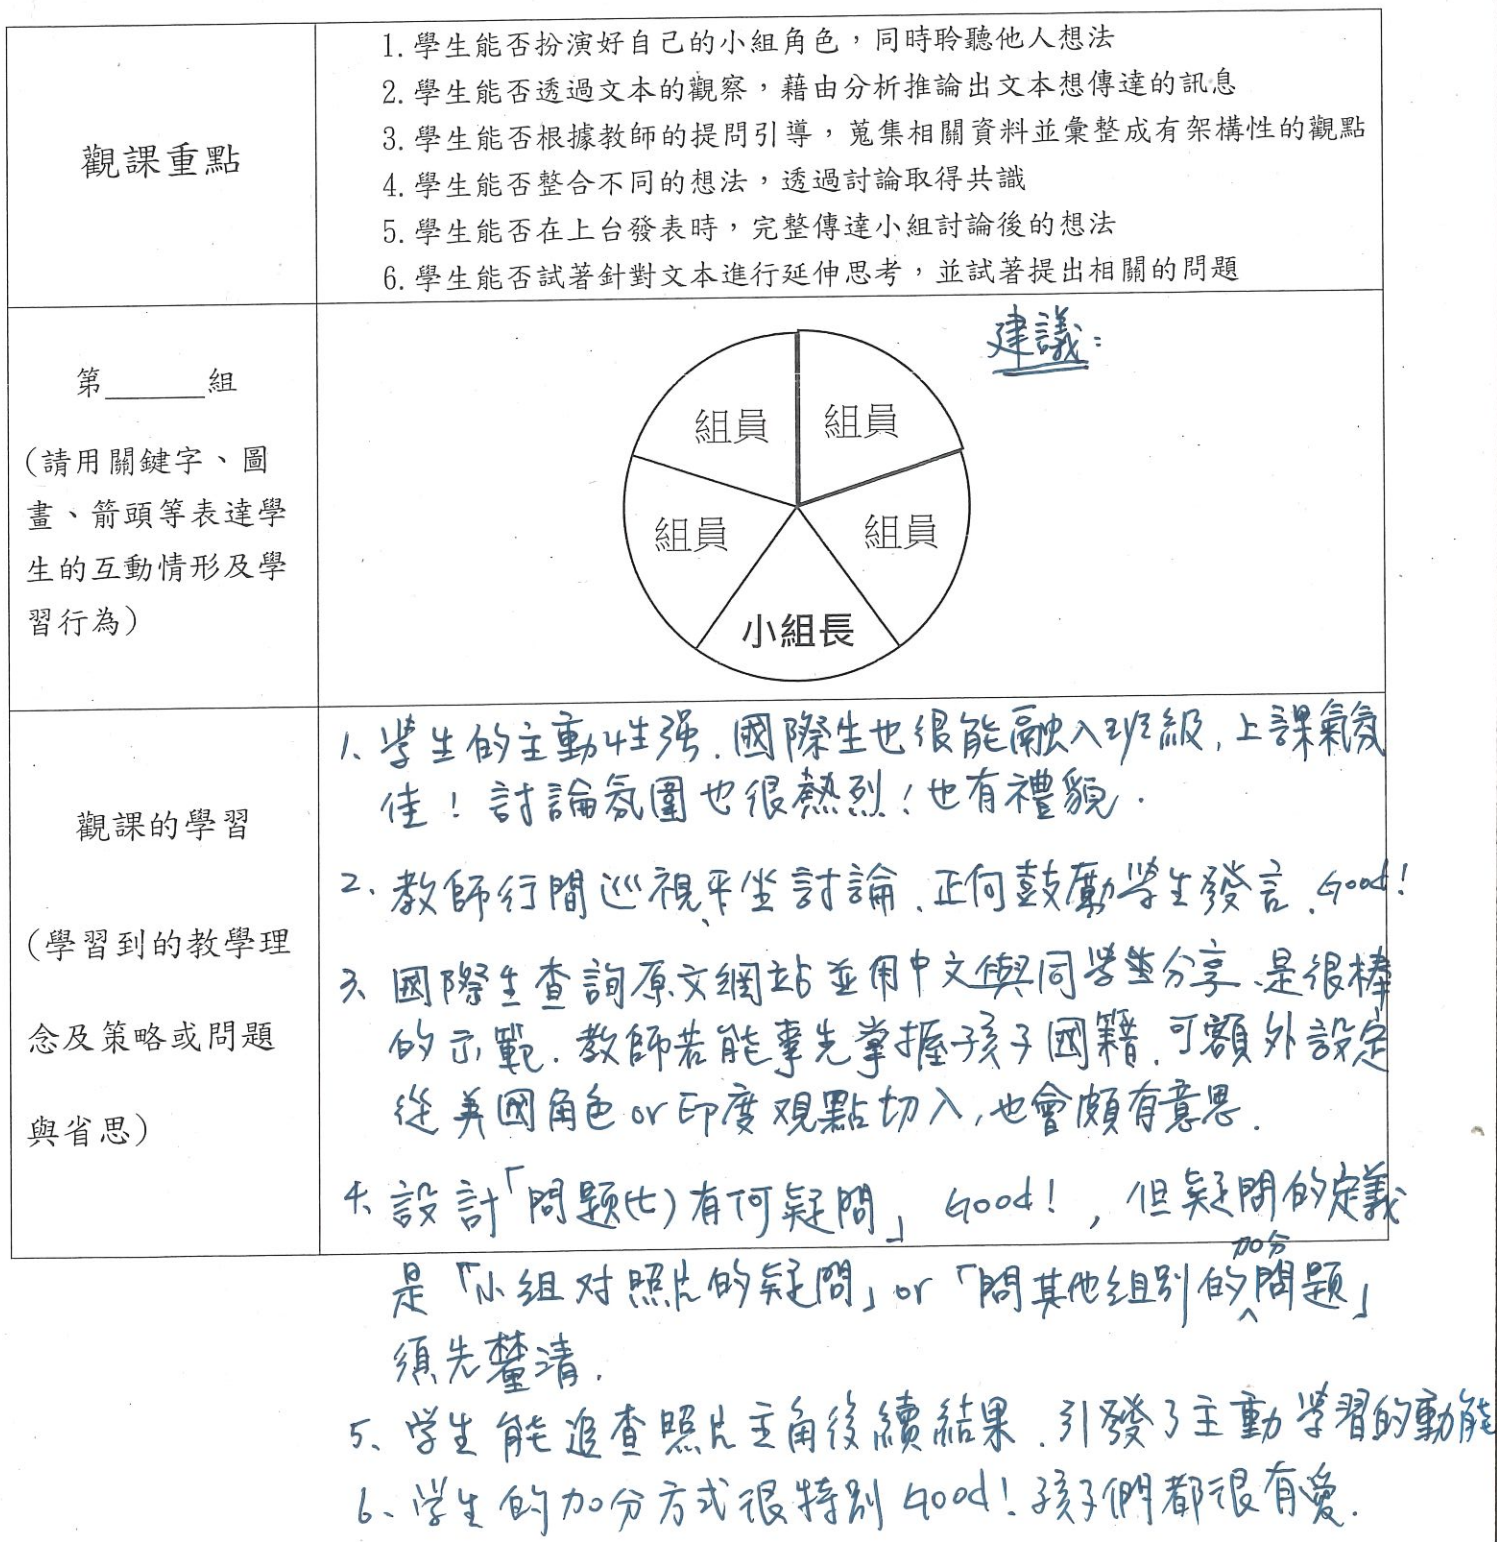 觀課重點
1.學生能否扮演好自己的小組角色，同時聆聽他人想法
2.學生能否透過文本的觀察，藉由分析推論出文本想傳達的訊息
3.學生能否根據教師的提問引導，蒐集相關資料並彙整成有架構性的觀點
4.學生能否整合不同的想法，透過討論取得共識
5.學生能否在上台發表時，完整傳達小組討論後的想法
6.學生能否試著針對文本進行延伸思考，並試著提出相關的問題
第______組
(請用關鍵字、圖
畫、箭頭等表達學
生的互動情形及學
習行為)
建議：
組員 組員
組員 組員
小組長
觀課的學習
(學習到的教學理
念及策略或問題
與省思)
1、学生的主動性強．國際生也很能融入班級，上課氣氛
佳！討論氛圍也很熱烈！也有禮貌．
2、教師行間巡視、平坐討論、正向鼓勵学生發言、Good！
3、國際生查詢原文網站並用中文與同学分享、是很棒
的示範．教師若能事先掌握孩子國籍、可額外設定
從美國角色or印度观點切入，也會頗有意思．
4、設計「問題(七)有何疑問」Good！，但疑問的定義
是「小組对照片的疑問」or「問其他組別的加分問題」
須先釐清．
5、学生能追查照片主角後續結果、引發了主動学習的動能
6、学生的加分方式很特別Good！孩子們都很有愛．